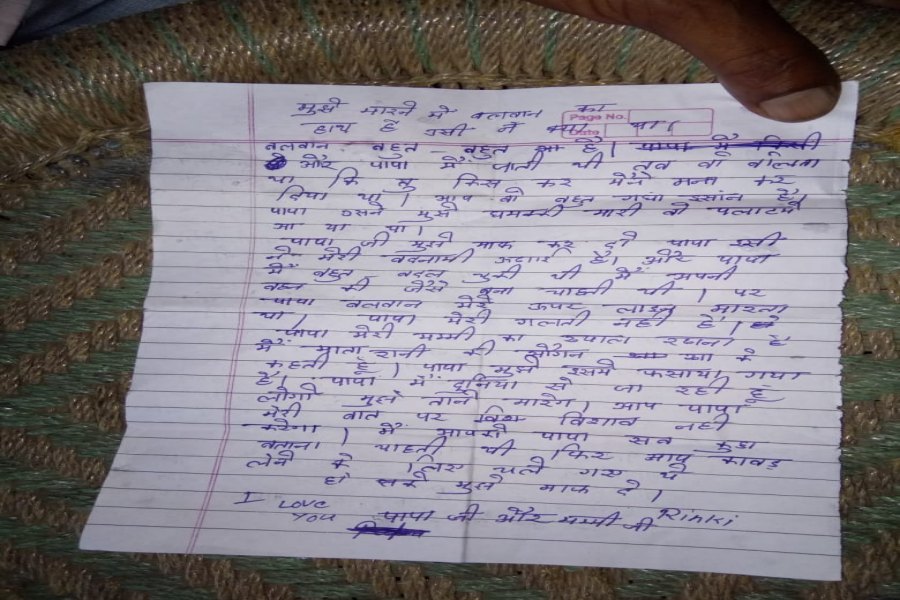 मुझे मारने मे बलवान का
Page No.
हाथ है उसी ने था।
Date
बलवान बहुत बहुत है।
और पापा मैं जाती थी तब वो बोलता
था कि तु किस कर मैंने मना कर
दिया था। आप वो बहुत गंधा इसांन है,
पापा उसने मुझे धमकी मारी वो पलाटमे
आ या था।
पापा जी मुझे माफ कर दो पापा उसी
ने मेरी बदनामी है। और पापा
मैं बहुत बदल चुकी थी मैं अपनी
बहन की जैसे बना चाहती थी। पर
पापा बलवान मेरे ऊपर लाइन मारता
था। पापा मेरी गलती नही है।
पापा मेरी मम्मी का ख्याल रखना है
मैं माता रानी की सौगन खा के
कहती हूँ। पापा मुझे इसमे फसाया गया
है। पापा मैं दुनिया से जा रही हूँ
लोगो मुझे ताने मारेगे। आप पापा
मेरी बात पर विशवाव नही
करेगा। मैं आपसे पापा सब कुछ
बताना चाहती थी फिर आप कावड
लेने के लिए चले गए थे
हो सके मुझे माफ दे।
I LOVE YOU पापा जी और मम्मी जी Rinki